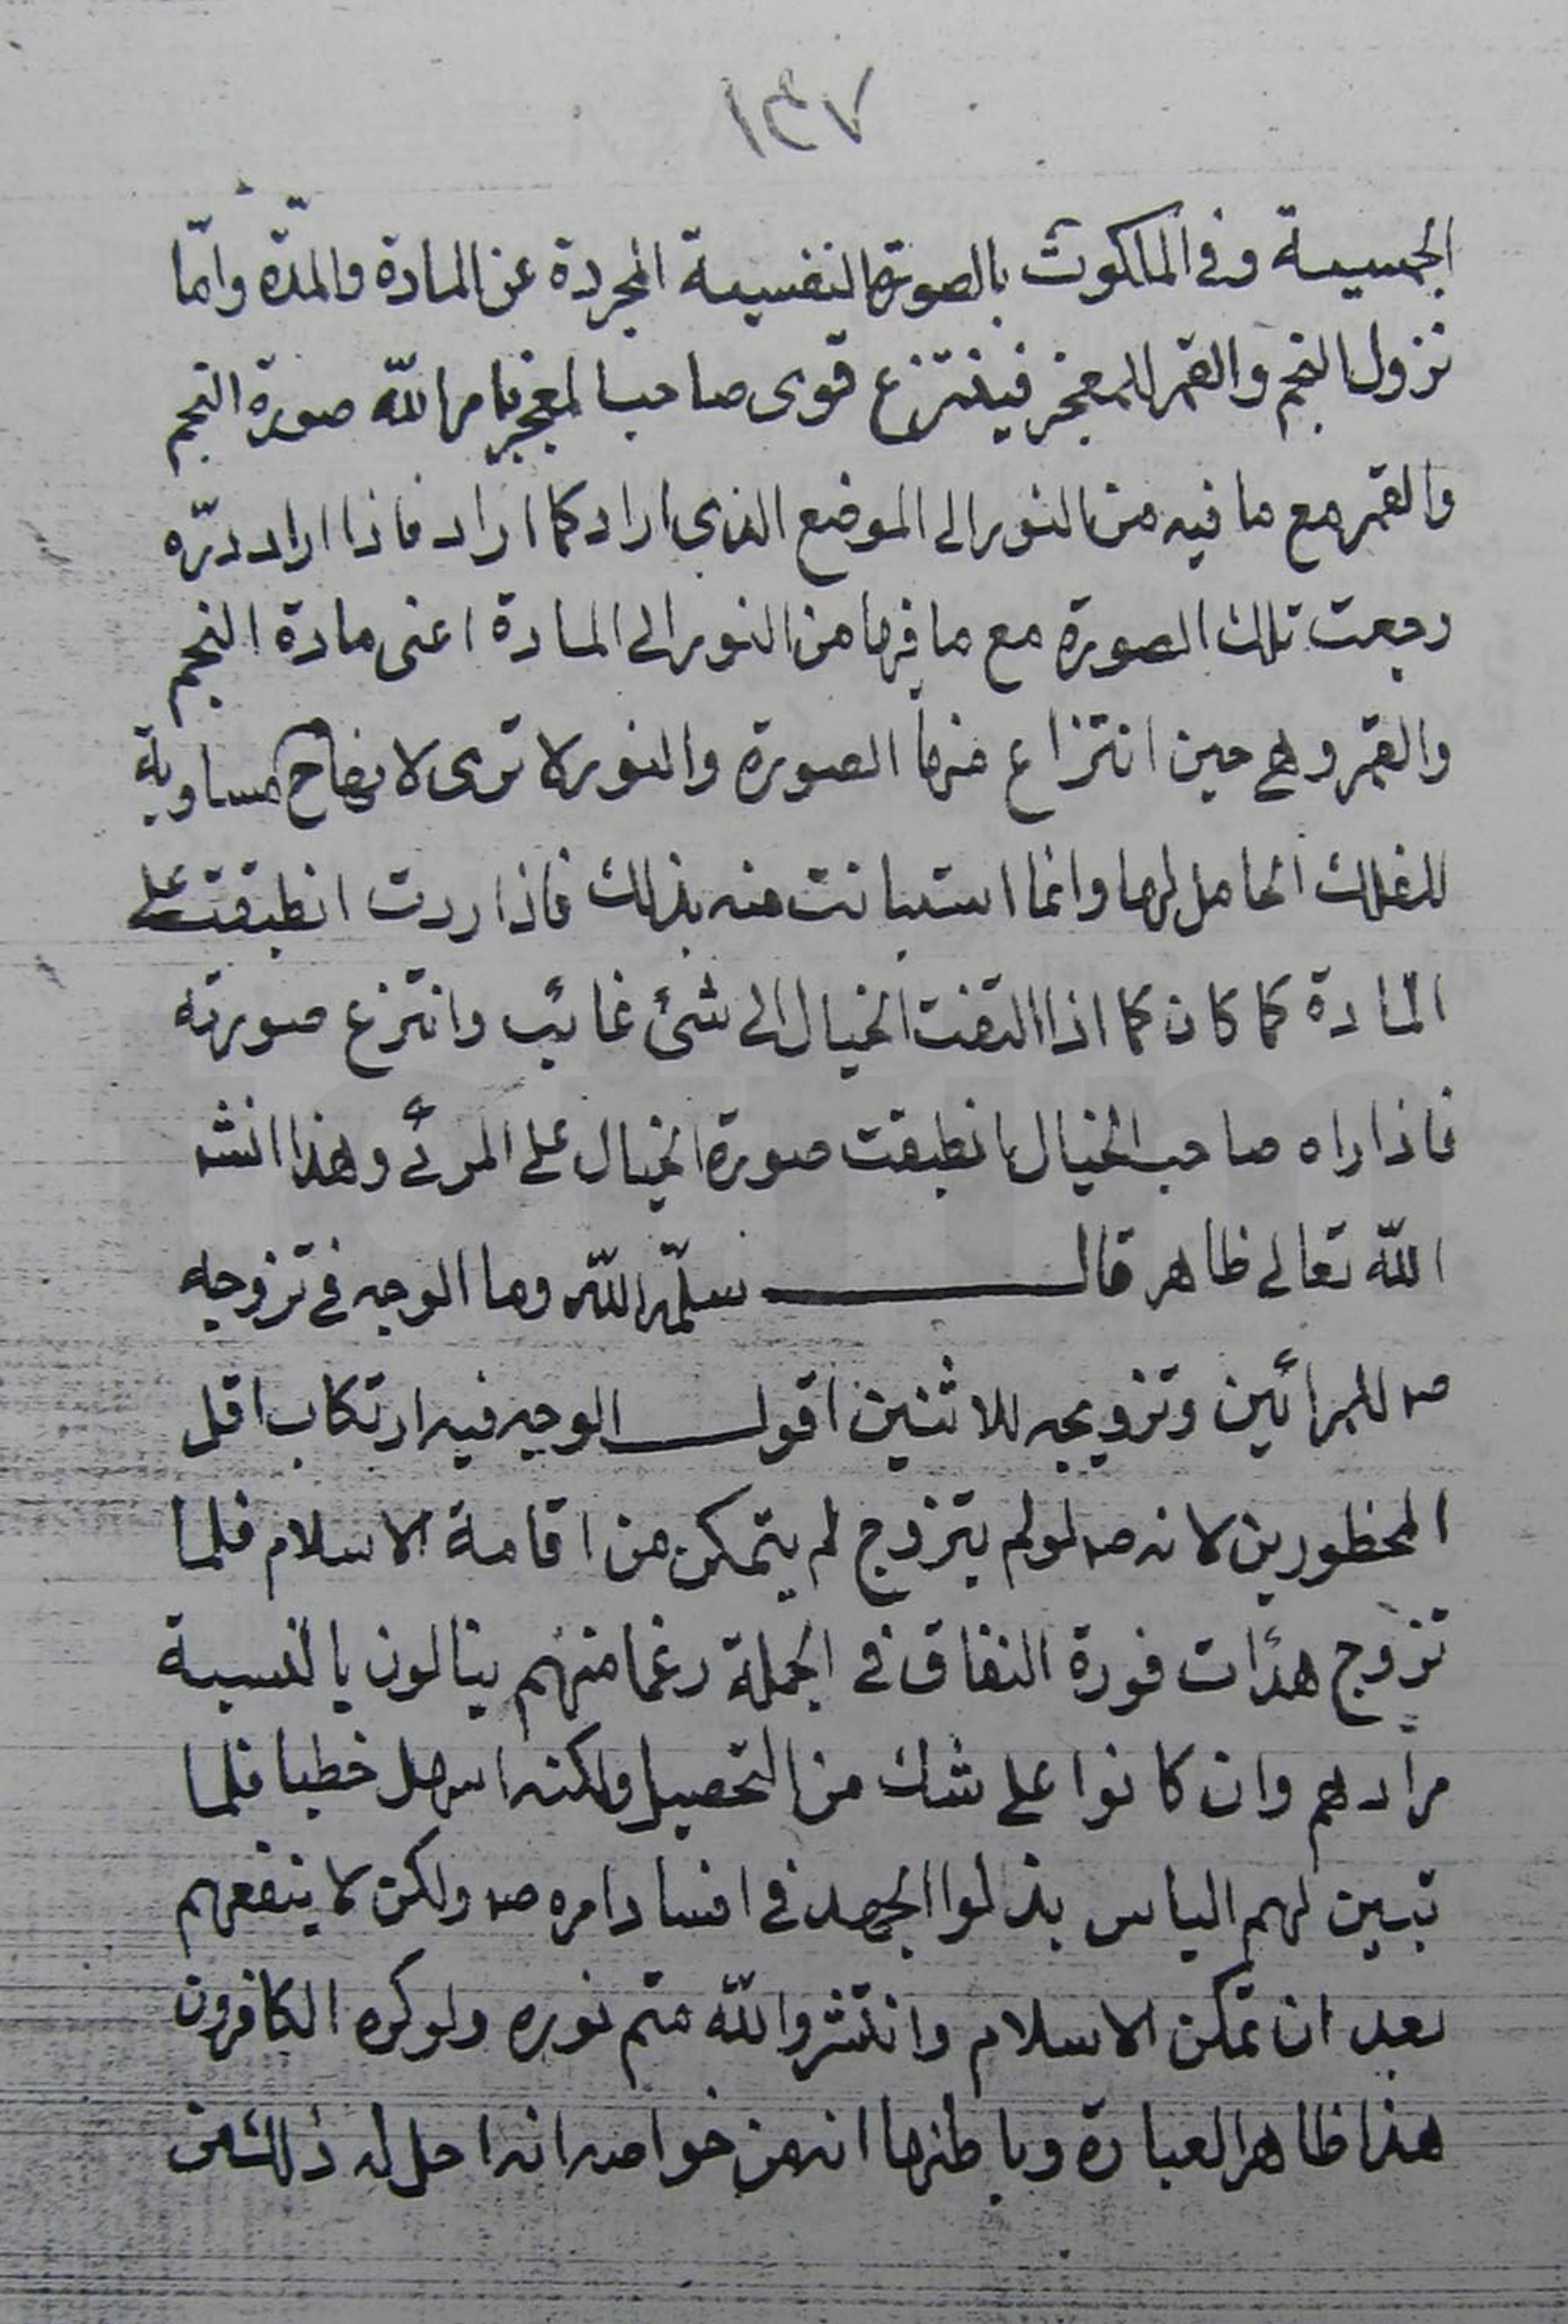 ١٤٧
الجسمية وفى الملكوت بالصورة النفسية المجردة عن المادة والمدّة وامّا
نزول النجم والقمر للمعجز فينتزع قوى صاحب المعجز بامر الله صورة النجم
والقمر مع ما فيه من النور الى الموضع الذى اراد كما اراد فاذا اراد ردّه
رجعت تلك الصورة مع ما فيها من النور الى المادة اعنى مادة النجم
والقمر وهى حين انتزاع منها الصورة والنور لا ترى لانها ح مساوية
للفلك الحامل لها وانما استبانت منه بذلك فاذا ردت انطبقت على
المادة كما كان كما اذا التفت الخيال الى شئ غائب وانتزع صورته
فاذا راه صاحب الخيال انطبقت صورة الخيال على المرئى وهذا انشا
الله تعالى ظاهر قال سلّمه الله وما الوجه فى تزوجه
صه للمرأتين وتزويجه للاثنين اقول الوجه فيه ارتكاب اقل
المحظورين لانه صه لو لم يتزوج لم يتمكن من اقامة الاسلام فلما
تزوج هدأت فورة النفاق فى الجملة زعما منهم ينالون بالنسبة
مرادهم وان كانوا على شك من التحصيل ولكنه اسهل خطبا فلما
تبين لهم الياس بذلوا الجهد فى افساد امره صه ولكن لا ينفعهم
بعد ان تمكن الاسلام وانتشر والله متم نوره ولو كره الكافرون
هذا ظاهر العبارة وباطنها انه من خواصه انه احل له ذلك من